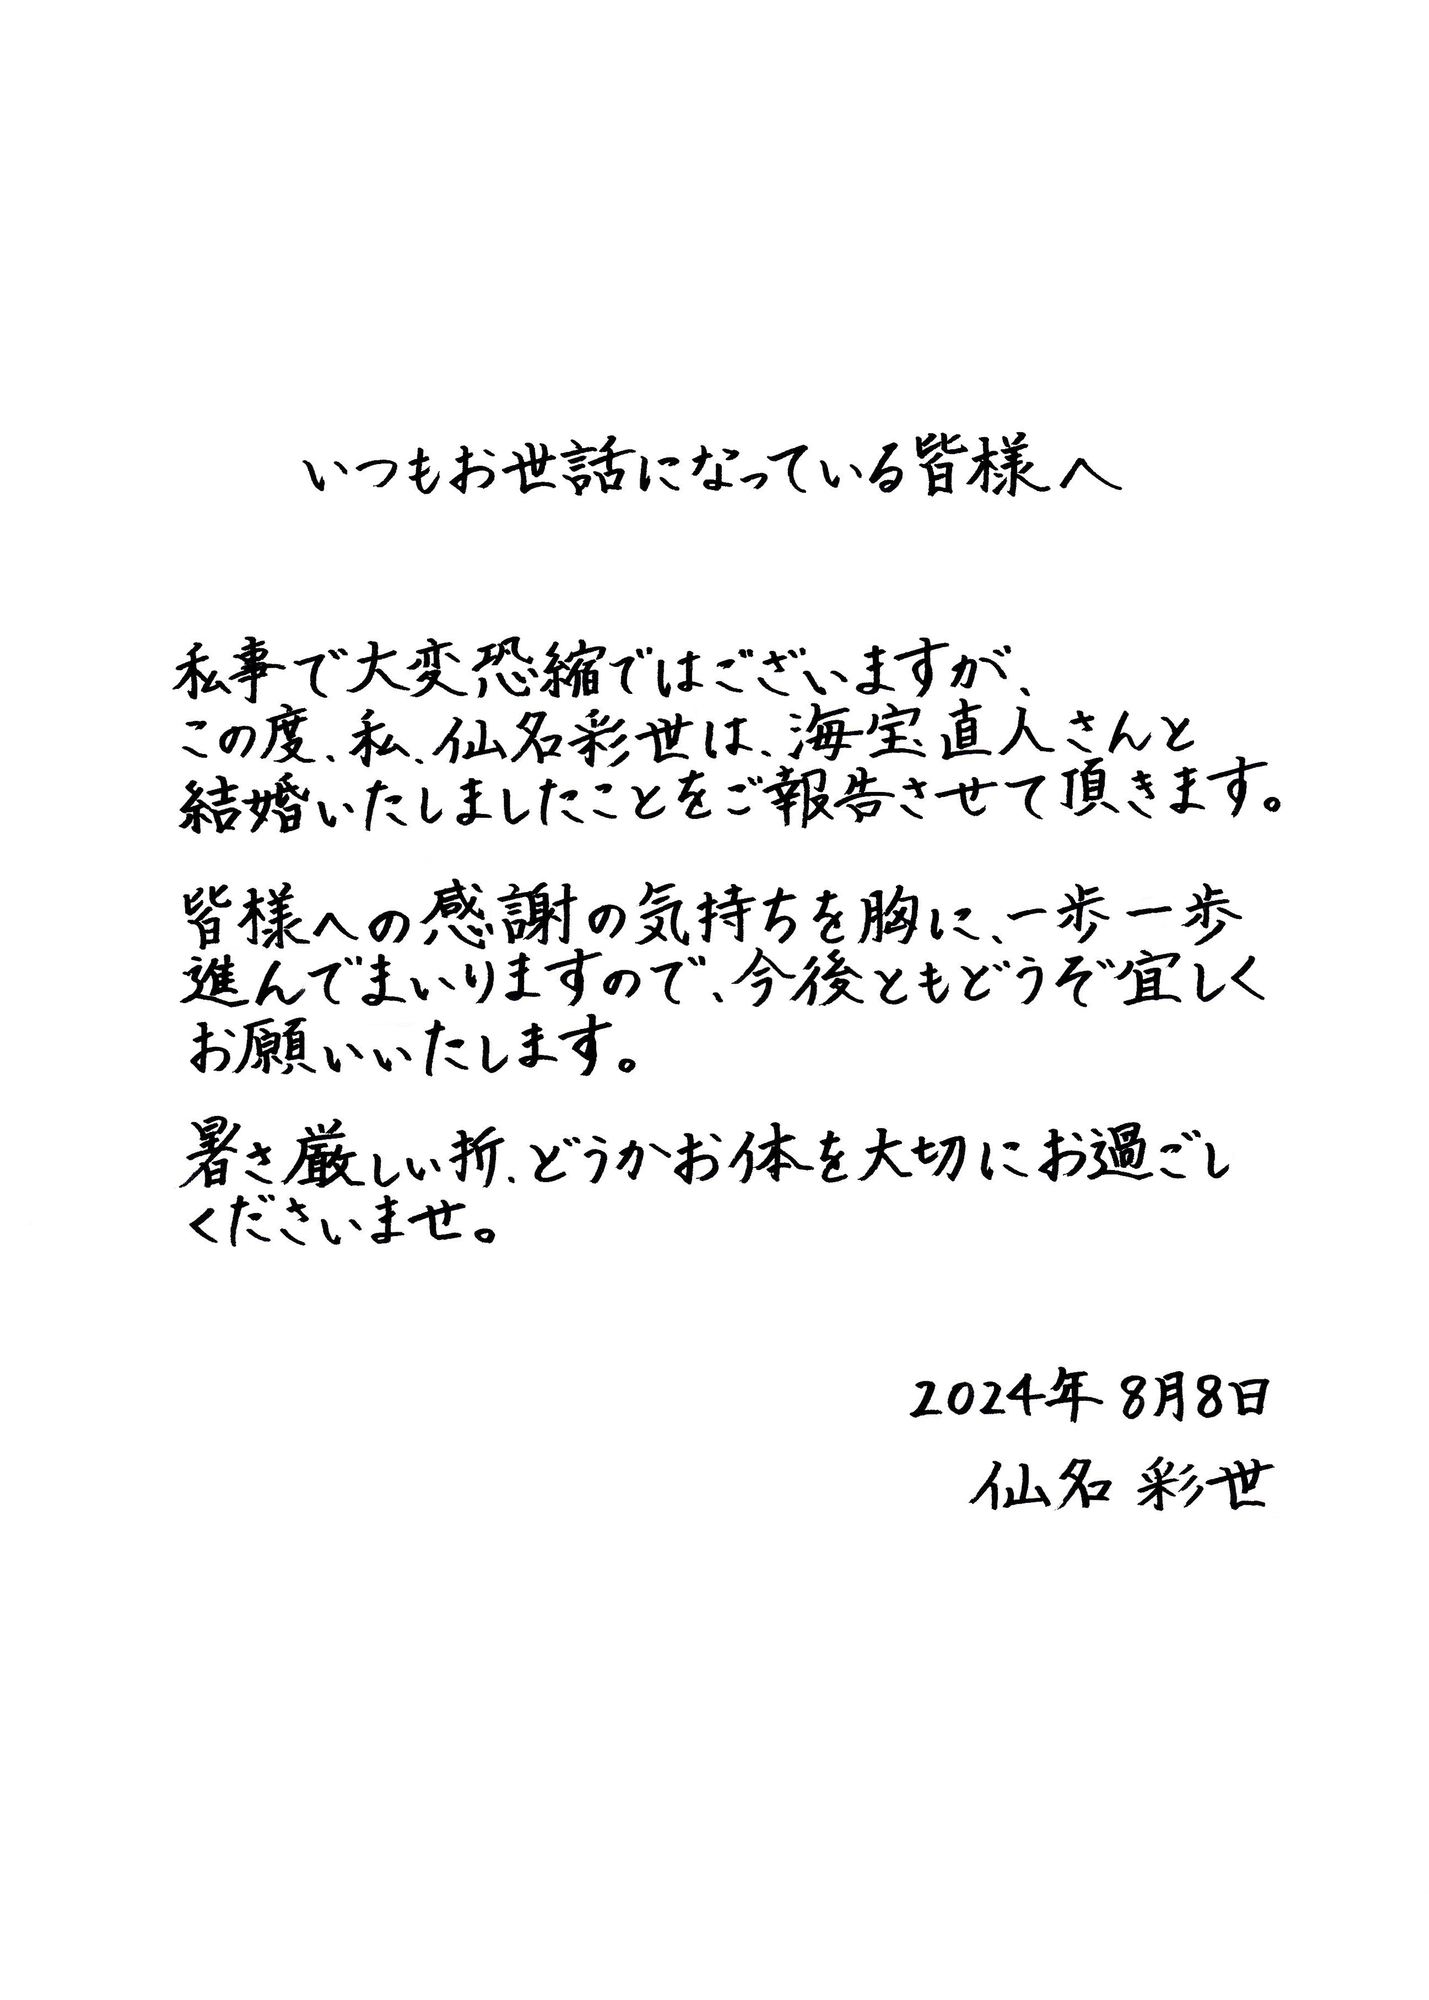 いつもお世話になっている皆様へ
私事で大変恐縮ではございますが、
この度、私、仙名彩世は、海宝直人さんと
結婚いたしましたことをご報告させて頂きます。
皆様への感謝の気持ちを胸に、一歩一歩
進んでまいりますので、今後ともどうぞ宜しく
お願いいたします。
暑さ厳しい折、どうかお体を大切にお過ごし
くださいませ。
2024年 8月8日
仙名 彩世